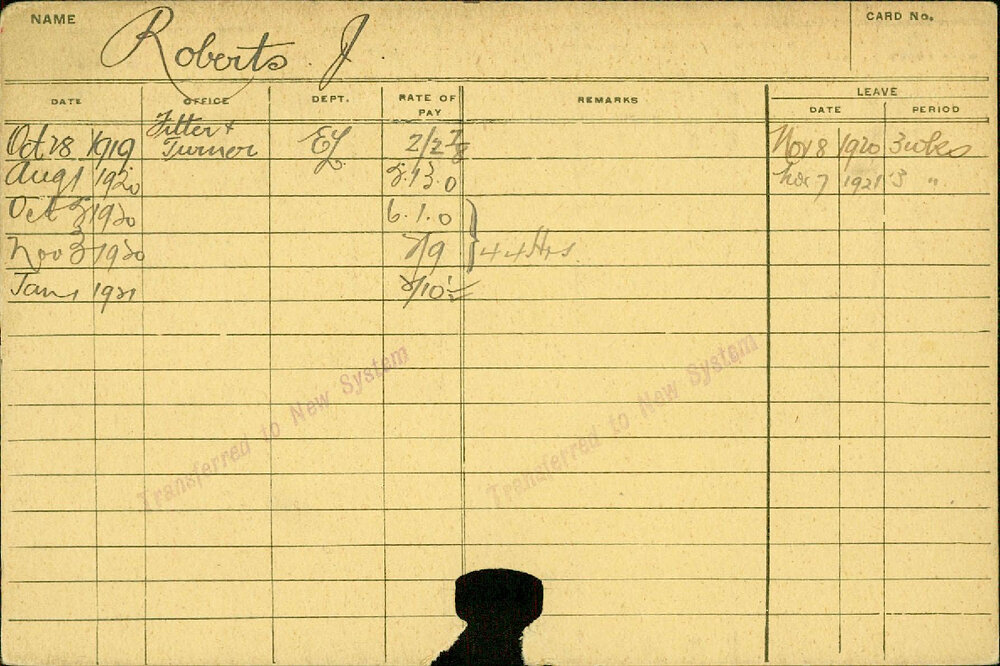 NAME Roberts. J CARD No.
DATE OFFICE DEPT. RATE OF PAY REMARKS LEAVE
DATE PERIOD
Oct 28 1919 Fitter & Turner EL 2/2 7/8 Nov 8 1920 3 wks
Aug 1 1920 5.13.0 Nov 7 1921 3 "
Oct 1920 6.1.0
Nov 3 1920 2/9 } 44 Hrs.
Jan 1 1921
Transferred to New System
Transferred to New System